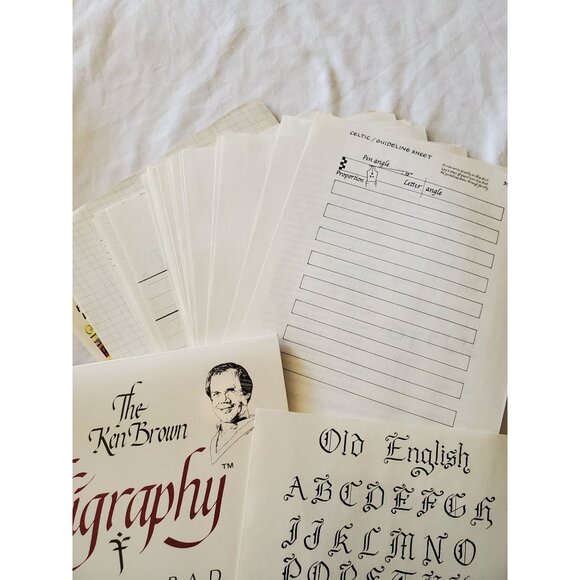 CELTIC/GUIDELINE SHEET
Pen angle
Proportion
Letter angle
The
Ken Brown
igraphy™
PAD
Old English
ABCDEFGH
IJKLMNO